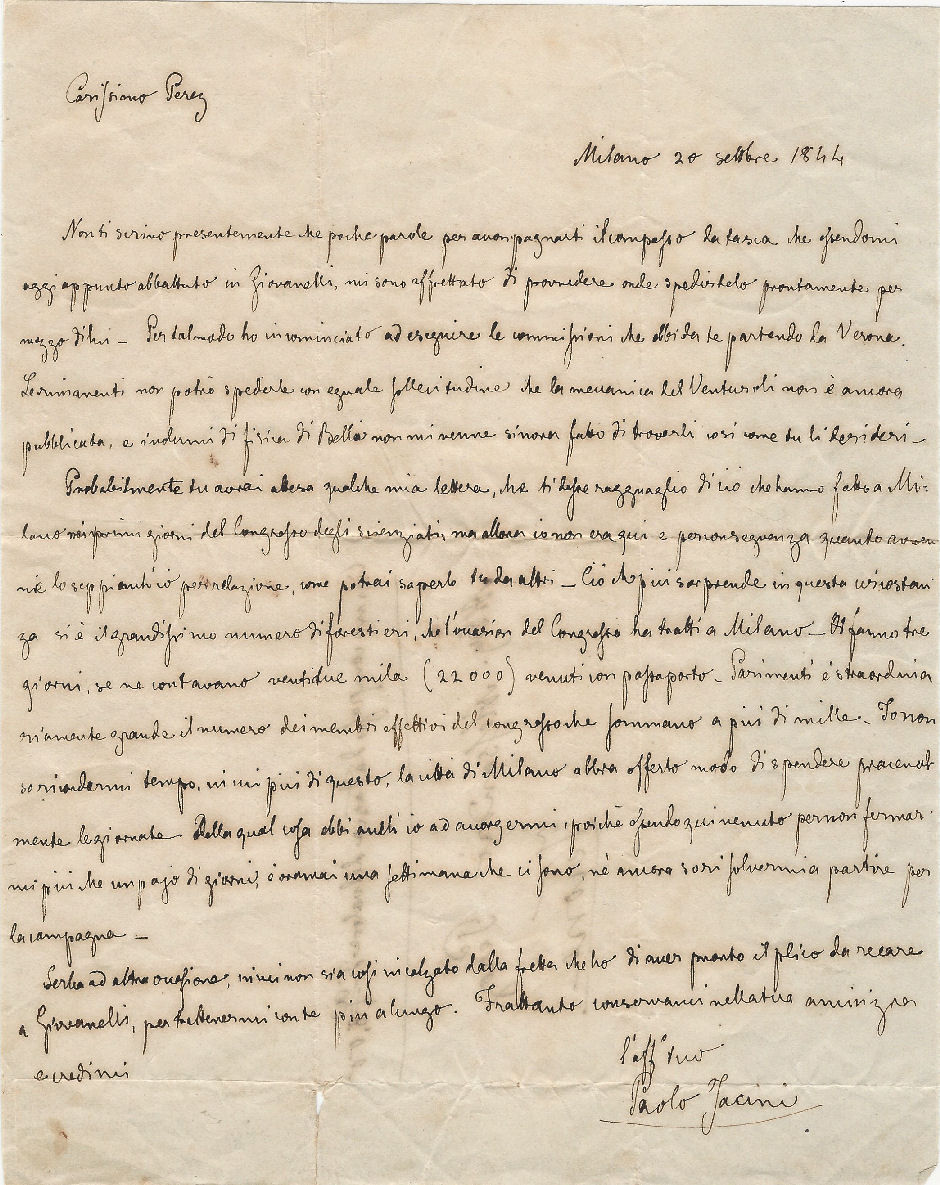 Carissimo Perez
Milano 20 settbre 1844
Non ti scrivo presentemente che poche parole per accompagnarti il compasso da tasca che essendomi
oggi appunto abbattuto in Giovanelli, mi sono affrettato di provvedere onde spedirtelo prontamente per
mezzo di lui – Per tal modo ho incominciato ad eseguire le commissioni che ebbi da te partendo da Verona.
non potrò spederle con eguale sollecitudine che la mecanica del Venturoli non è ancora
pubblicata, e i di fisica di Bella non mi venne sinora fatto di trovarli così come tu li desideri –
Probabilmente tu avrai attesa qualche mia lettera, che ti desse ragguaglio di ciò che hanno fatto a Mi-
lano nei primi giorni del Congresso degli scienziati; ma allora io non era qui e per conseguenza quanto avven
ne lo seppi anch'io per relazione, come potrai saperlo tu da altri – Ciò che più sorprende in questa circostan
za si è il grandissimo numero di forestieri, che l'occasion del Congresso ha tratti a Milano – fanno tre
giorni, se ne contavano ventidue mila (22000) venuti con passaporto – Parimenti è straordina
riamente grande il numero dei membri effettivi del congresso che sommano a più di mille – Io non
so ricordarmi tempo, in cui più di questo, la città di Milano abbia offerto modo di spendere piacevol
mente le giornate – Della qual cosa ebbi anch'io ad accorgermi, poichè essendo qui venuto per non fermar
mi più che un pajo di giorni, è oramai una settimana che ci sono, nè ancora so risolvermi a partire per
la campagna –
Serbo ad altra occasione, in cui non sia così incalzato dalla fretta che ho di aver pronto il plico da recare
a Giovanelli, per trattenermi con te più a lungo. Frattanto conservami nella tua amicizia
e credimi
l'aff° tuo
Paolo Jacini